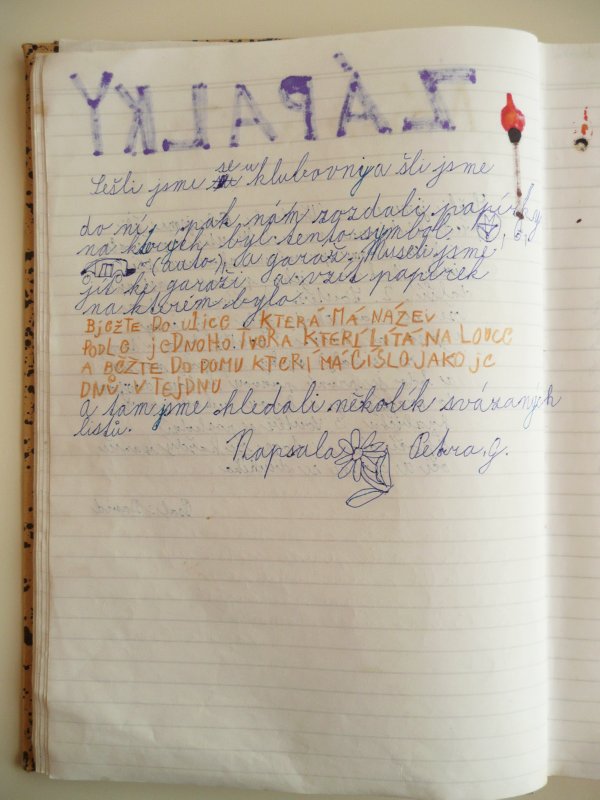 ZÁPALKY
Sešli jsme se u klubovny a šli jsme
do ní, pak nám rozdali papírky
na kterých byl tento symbol
(auto), a garaž. Museli jsme
jít ke garaži a vzít papírek
na kterém bylo:
BJEŽTE DO ULICE, KTERÁ MÁ NÁZEV
PODLE JEDNOHO TVORA KTERÍ LÍTÁ NA LOUCE
A BĚŽTE DO DOMU KTERÍ MÁ ČÍSLO JAKO JE
DNŮ V TEJDNU
A tam jsme hledali několik svázaných
listů.
Napsala Petra G.